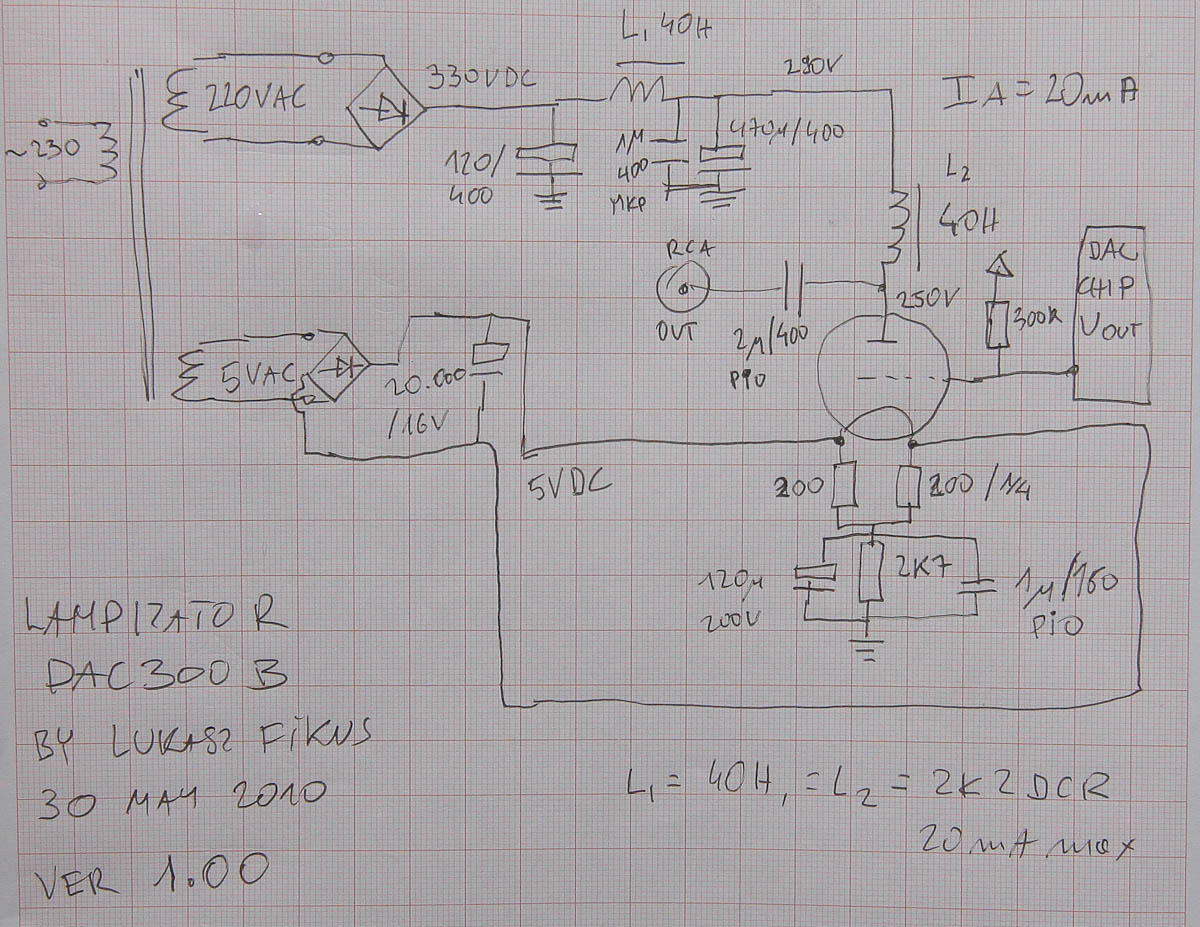 L₁ 40H
220VAC
330VDC
290V
IA = 20mA
~230
120/
400
1µ
400
MKP
470µ/400
L₂
40H
RCA
OUT
2µ/400
PIO
250V
300R
DAC
CHIP
VOUT
5VAC
20.000
/16V
5VDC
200
200 /1/4
120µ
200V
2K7
1µ/160
PIO
LAMPIZATOR
DAC 300 B
BY LUKASZ FIKUS
30 MAY 2010
VER 1.00
L₁ = 40H, = L₂ = 2K2 DCR
20 mA max